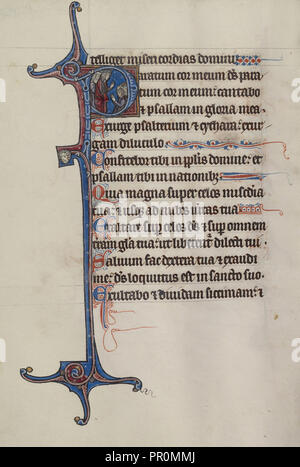 telliget misericordias domini
Paratum cor meum ds para
tum cor meum: cantabo
& psallam in gloria mea.
Exurge psalterium & cythara: exur
gam diluculo
Confitebor tibi in pplis domine: et
psallam tibi in nationib;
Quia magna super celos misedia
tua: & usq; ad nubes ueritas tua
Exaltare sup celos ds & sup omnem
terram gla tua: ut liberent dilecti tui.
Saluum fac dextera tua & exaudi
me: ds loquutus est in sancto suo.
Exultabo & diuidam sicimam: &
alamy
PR0MMJ